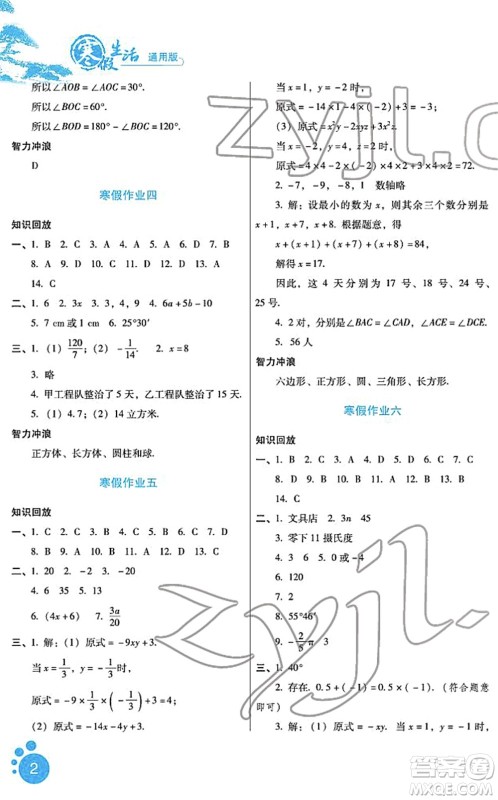 寒假生活 通用版
所以∠AOB = ∠AOC = 30°.
所以∠BOC = 60°.
所以∠BOD = 180° - ∠AOB = 150°.
智力冲浪
D
寒假作业四
知识回放
一、1. B 2. C 3. A 4. D 5. D 6. B 7. B
8. A 9. D 10. D 11. C 12. D 13. A
14. C
二、1. 6 2. 6.3 3. x 4. 6a + 5b - 10
5. 7 cm 或 1 cm 6. 25°30′
三、1. (1) 120/7; (2) -1/14. 2. x = 8
3. 略
4. 甲工程队整治了 5 天, 乙工程队整治了 15 天.
5. (1) 4.7; (2) 14 立方米.
智力冲浪
正方体、长方体、圆柱和球.
寒假作业五
知识回放
一、1. C 2. D 3. B 4. A 5. C 6. D 7. B
8. D 9. A 10. B 11. B 12. A 13. C
二、1. 20 2. -2 3. -20
4. 6 35 5. 13
6. (4x + 6) 7. 3a/20
三、1. 解: (1) 原式 = -9xy + 3.
当 x = 1/3, y = -1/3 时,
原式 = -9 × 1/3 × (-1/3) + 3 = 4;
(2) 原式 = -14x - 4y + 3.
当 x = 1, y = -2 时,
原式 = -14 × 1 - 4 × (-2) + 3 = -3;
(3) 原式 = x²y - 2xyz + 3x²z.
当
原式 = 4 × 4 - 2 × (-2) × 4 × 2 + 3 × 4 × 2 = 72.
2. -7, -9, -8, 1 数轴略
3. 解: 设最小的数为 x, 则其余三个数分别为
x + 1, x + 7, x + 8. 根据题意, 得
x + (x + 1) + (x + 7) + (x + 8) = 84.
解得 x = 17.
因此, 这 4 天分别为 17 号、18 号、24 号、
25 号.
4. 2 对, 分别是: ∠BAC = ∠CAD, ∠ACE = ∠DCE.
5. 56 人
智力冲浪
六边形、正方形、圆、三角形、长方形.
寒假作业六
知识回放
一、1. B 2. C 3. C 4. A 5. D 6. A 7. C
8. B 9. D 10. B 11. C 12. B 13. D
14. C
二、1. 文具店
2. 3n 45
3. 零下 11 摄氏度
4. 3 6 5. 0 或 -4
6. 120
7. 2
8. 55°46′
9. -2/5 π 3
三、1. 40°
2. 存在. 0.5 + (-1) = -0.5. (符合题意
即可)
3. 解: (1) 原式 = -xy. 当 x = 1, y = -1 时,
2
zyjl.cn
zyjl.cn
答案圈
MXQE.COM